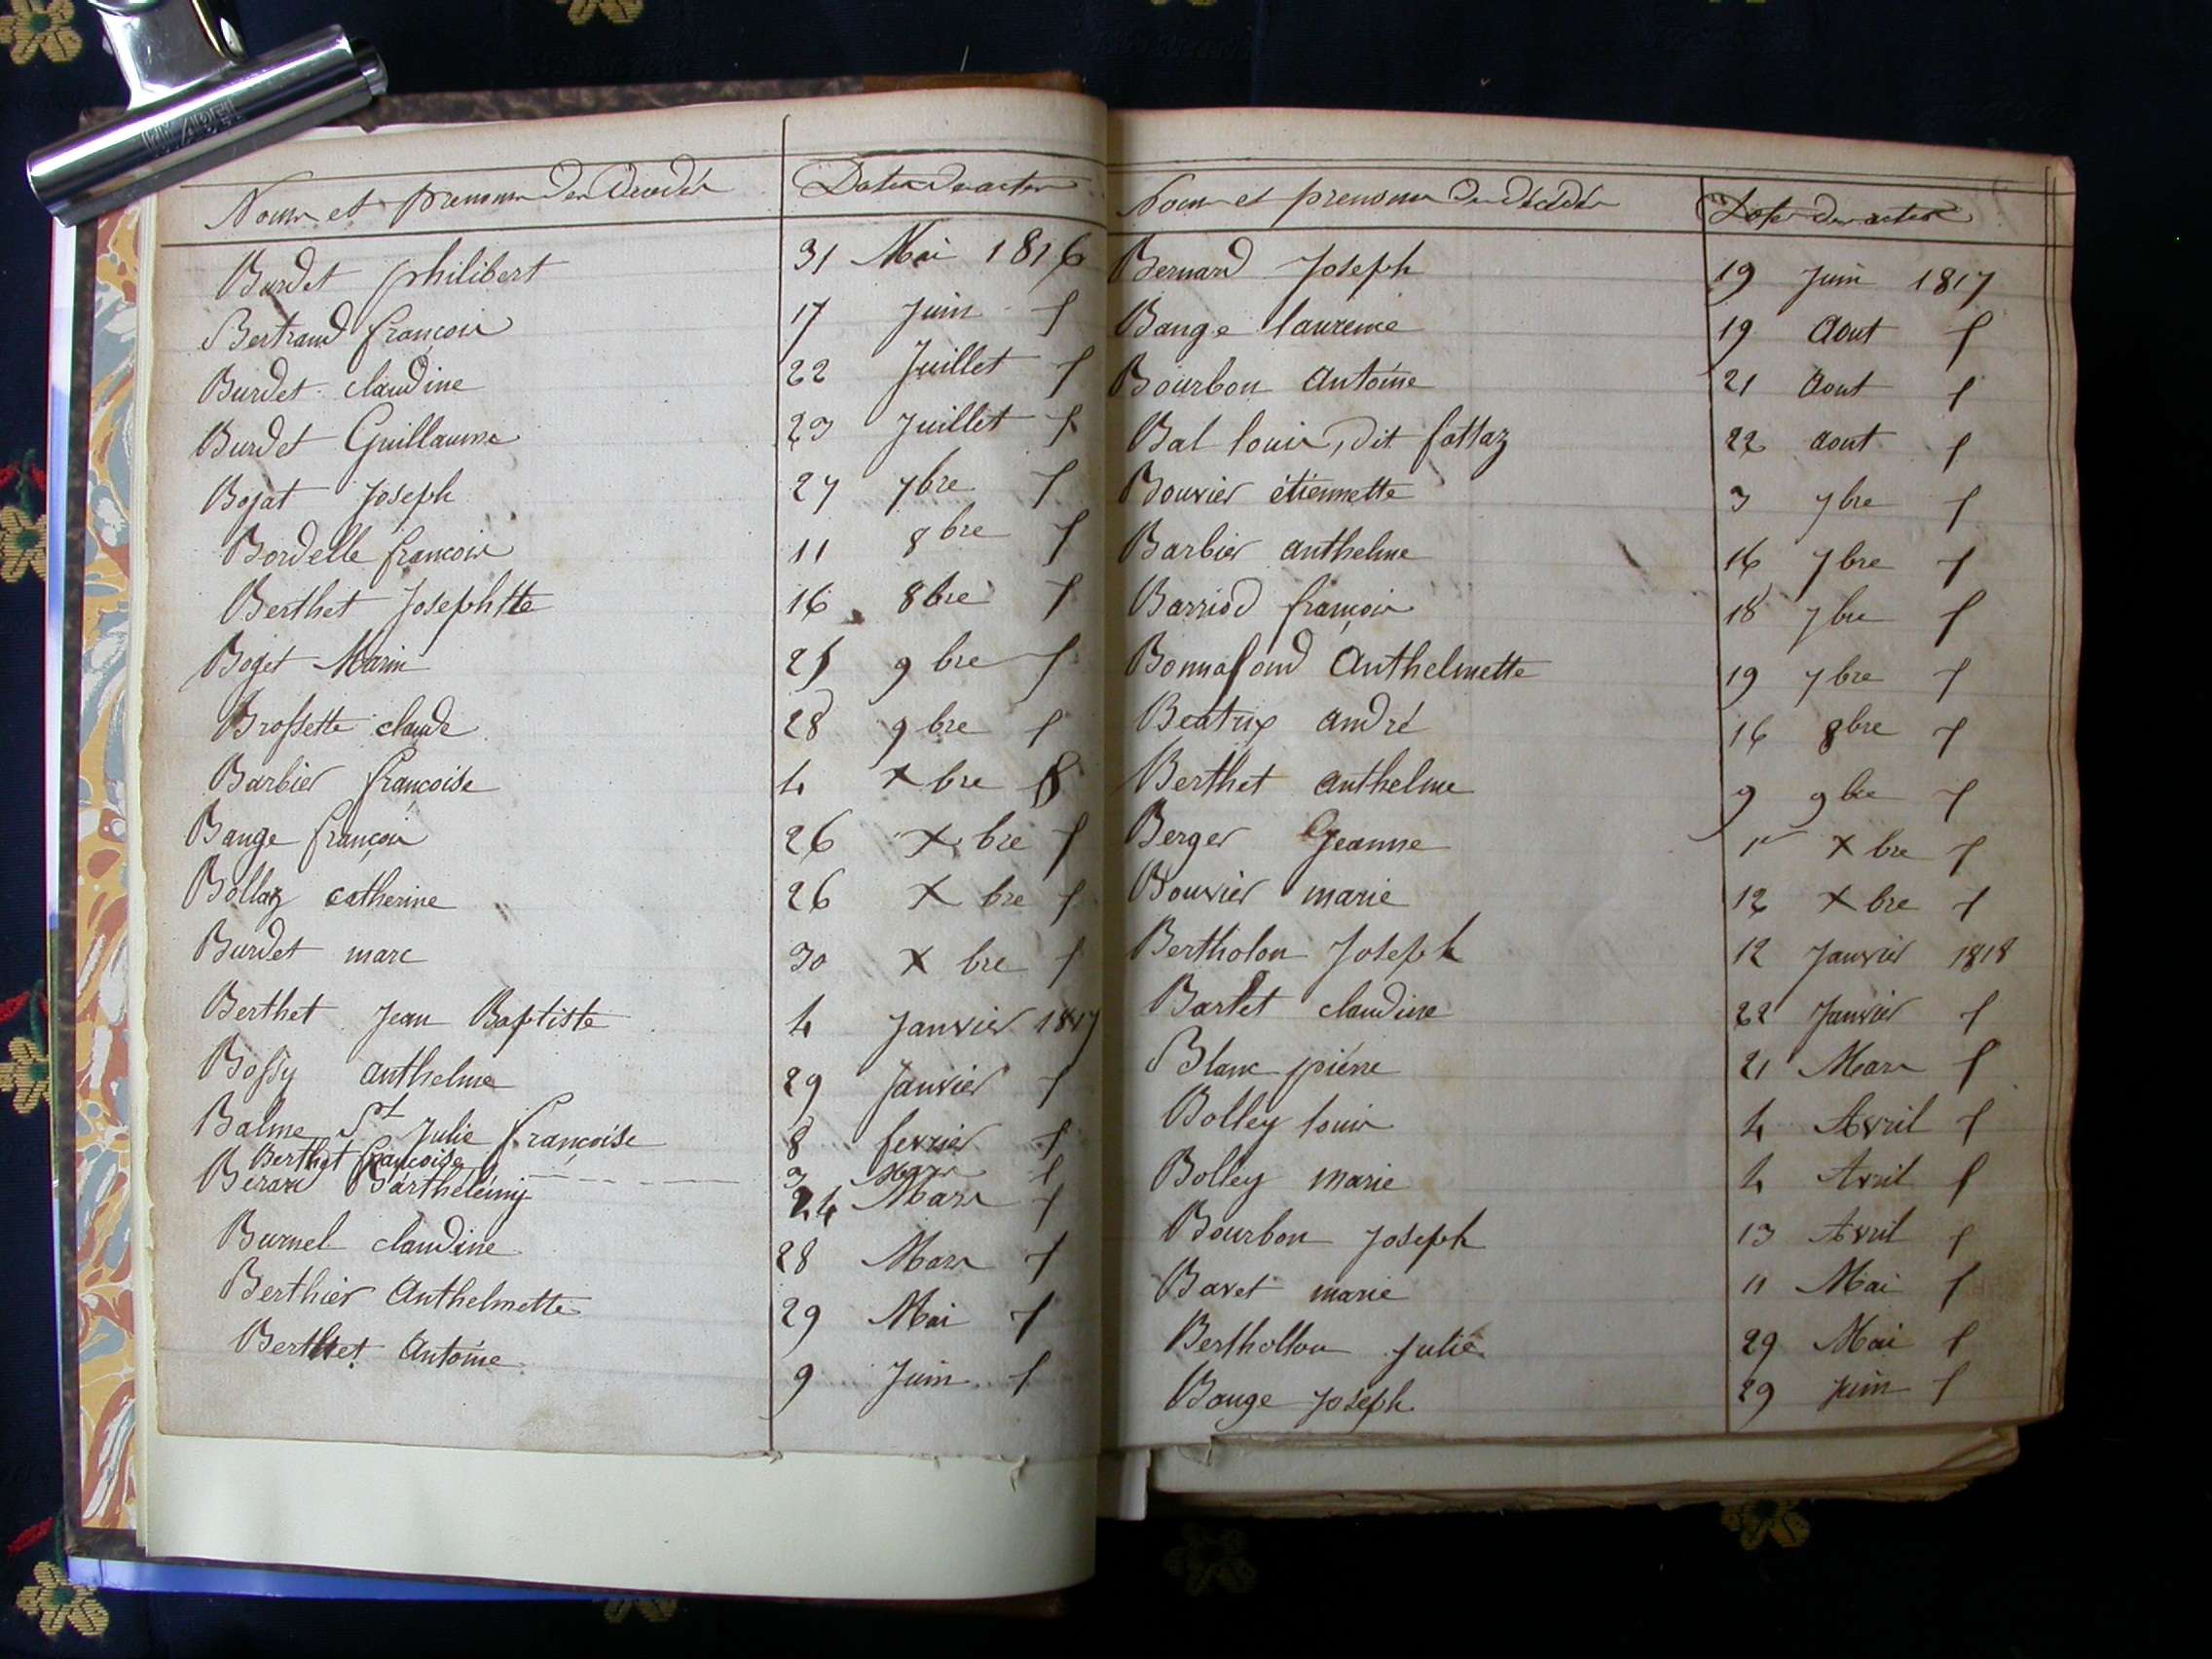 Noms et prenoms des décédés Dates des actes
Burdet philibert 31 Mai 1816
Bertrand françois 17 Juin f
Burdet claudine 22 Juillet f
Burdet Guillaume 23 Juillet f
Bojat Joseph 27 7bre f
Bordelle françois 11 8bre f
Berthet Josephtte 16 8bre f
Bojet Marin 25 9bre f
Brossette claude 28 9bre f
Barbier françoise 4 Xbre f
Bange françois 26 Xbre f
Bollaz catherine 26 Xbre f
Burdet marc 30 Xbre f
Berthet Jean Baptiste 4 Janvier 1817
Bossy anthelme 29 Janvier f
Balme St Julie françoise 8 fevrier f
Berthet françoise 3 Mars f
Berard Barthelémy 24 Mars f
Burnel claudine 28 Mars f
Berthier Anthelmette 29 Mai f
Berthet Antoine 9 Juin f
Noms et prenoms des décédés Dates des actes
Bernard Joseph 19 Juin 1817
Bange laurence 19 Aout f
Bourbon Antoine 21 Aout f
Bal louis, dit fattaz 22 aout f
Bouvier étiennette 3 7bre f
Barbier anthelme 16 7bre f
Barriod françois 18 7bre f
Bonnafond Anthelmette 19 7bre f
Beatrix andré 16 8bre f
Berthet anthelme 9 9bre f
Berger Jeanne 1er Xbre f
Bouvier marie 12 Xbre f
Bertholon Joseph 12 Janvier 1818
Barlet claudine 22 Janvier f
Blanc piérre 21 Mars f
Bolley louis 4 Avril f
Bolley marie 4 Avril f
Bourbon Joseph 13 Avril f
Bavet marie 11 Mai f
Berthollon Julie 29 Mai f
Bange Joseph 29 Juin f